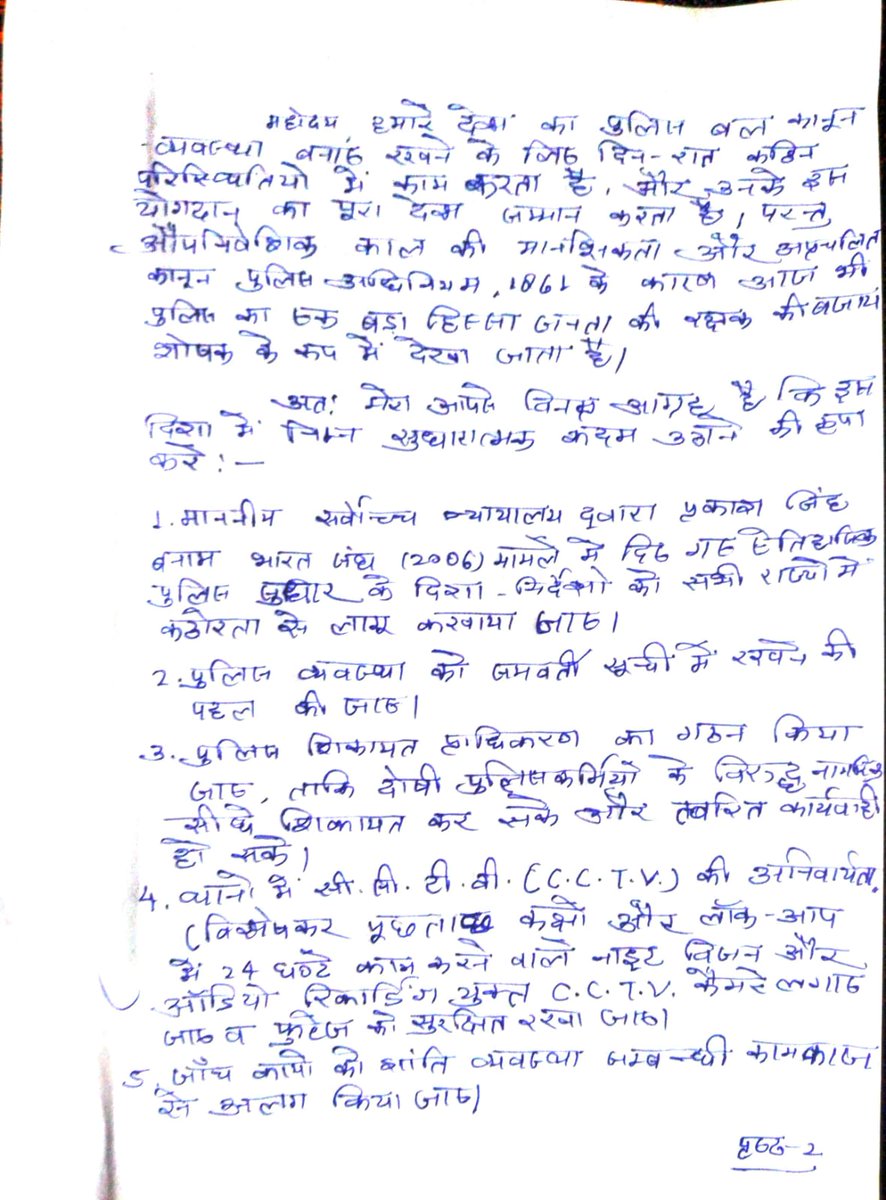 महोदय हमारे देश का पुलिस बल कानून
व्यवस्था बनाए रखने के लिए दिन-रात कठिन
परिस्थितियों में काम करता है, और उनके इस
योगदान का पूरा देश सम्मान करता है, परन्तु
औपनिवेशिक काल की मानसिकता और अप्रचलित
कानून पुलिस अधिनियम, 1861 के कारण आज भी
पुलिस का एक बड़ा हिस्सा जनता की रक्षक की बजाय
शोषक के रूप में देखा जाता है।
अत: मेरा आपसे विनम्र आग्रह है कि इस
दिशा में निम्न सुधारात्मक कदम उठाने की कृपा
करें :-
1. माननीय सर्वोच्च न्यायालय द्वारा प्रकाश सिंह
बनाम भारत संघ (2006) मामले में दिए गए ऐतिहासिक
पुलिस सुधार के दिशा-निर्देशों को सभी राज्यों में
कठोरता से लागू करवाया जाए।
2. पुलिस व्यवस्था को समवर्ती सूची में रखने की
पहल की जाए।
3. पुलिस शिकायत प्राधिकरण का गठन किया
जाए, ताकि दोषी पुलिसकर्मियों के विरुद्ध नागरिक
सीधे शिकायत कर सके और त्वरित कार्यवाही
हो सके।
4. थानों में सी.सी.टी.वी. (C.C.T.V.) की अनिवार्यता
(विशेषकर पूछताछ कक्षों और लॉक-आप
में 24 घण्टे काम करने वाले नाइट विजन और
ऑडियो रिकार्डिंग युक्त C.C.T.V. कैमरे लगाए
जाए व फुटेज को सुरक्षित रखा जाए।
5. जाँच कार्यो को शांति व्यवस्था सम्बन्धी कामकाज
से अलग किया जाए।
पृष्ठ-2